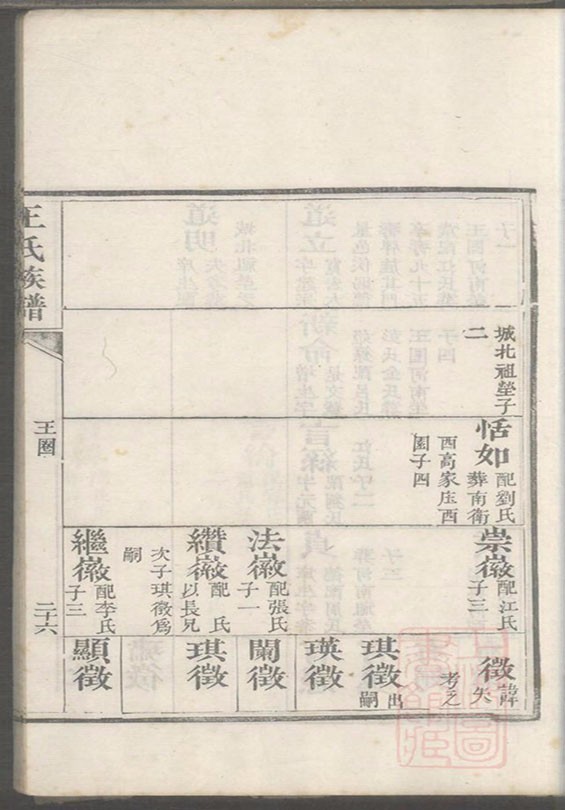 城北祖塋子
二
恬如
配劉氏
葬南衛
西高家庄西
園子四
崇徽
配江氏
子三
法徽
配張氏
子一
纘徽
配 氏
以長兄
次子琪徵為
嗣
繼徽
配李氏
子三
徵
諱
失
考之
琪徵
出
嗣
瑛徵
蘭徵
琪徵
顯徵
王氏族譜
王圈
二十六